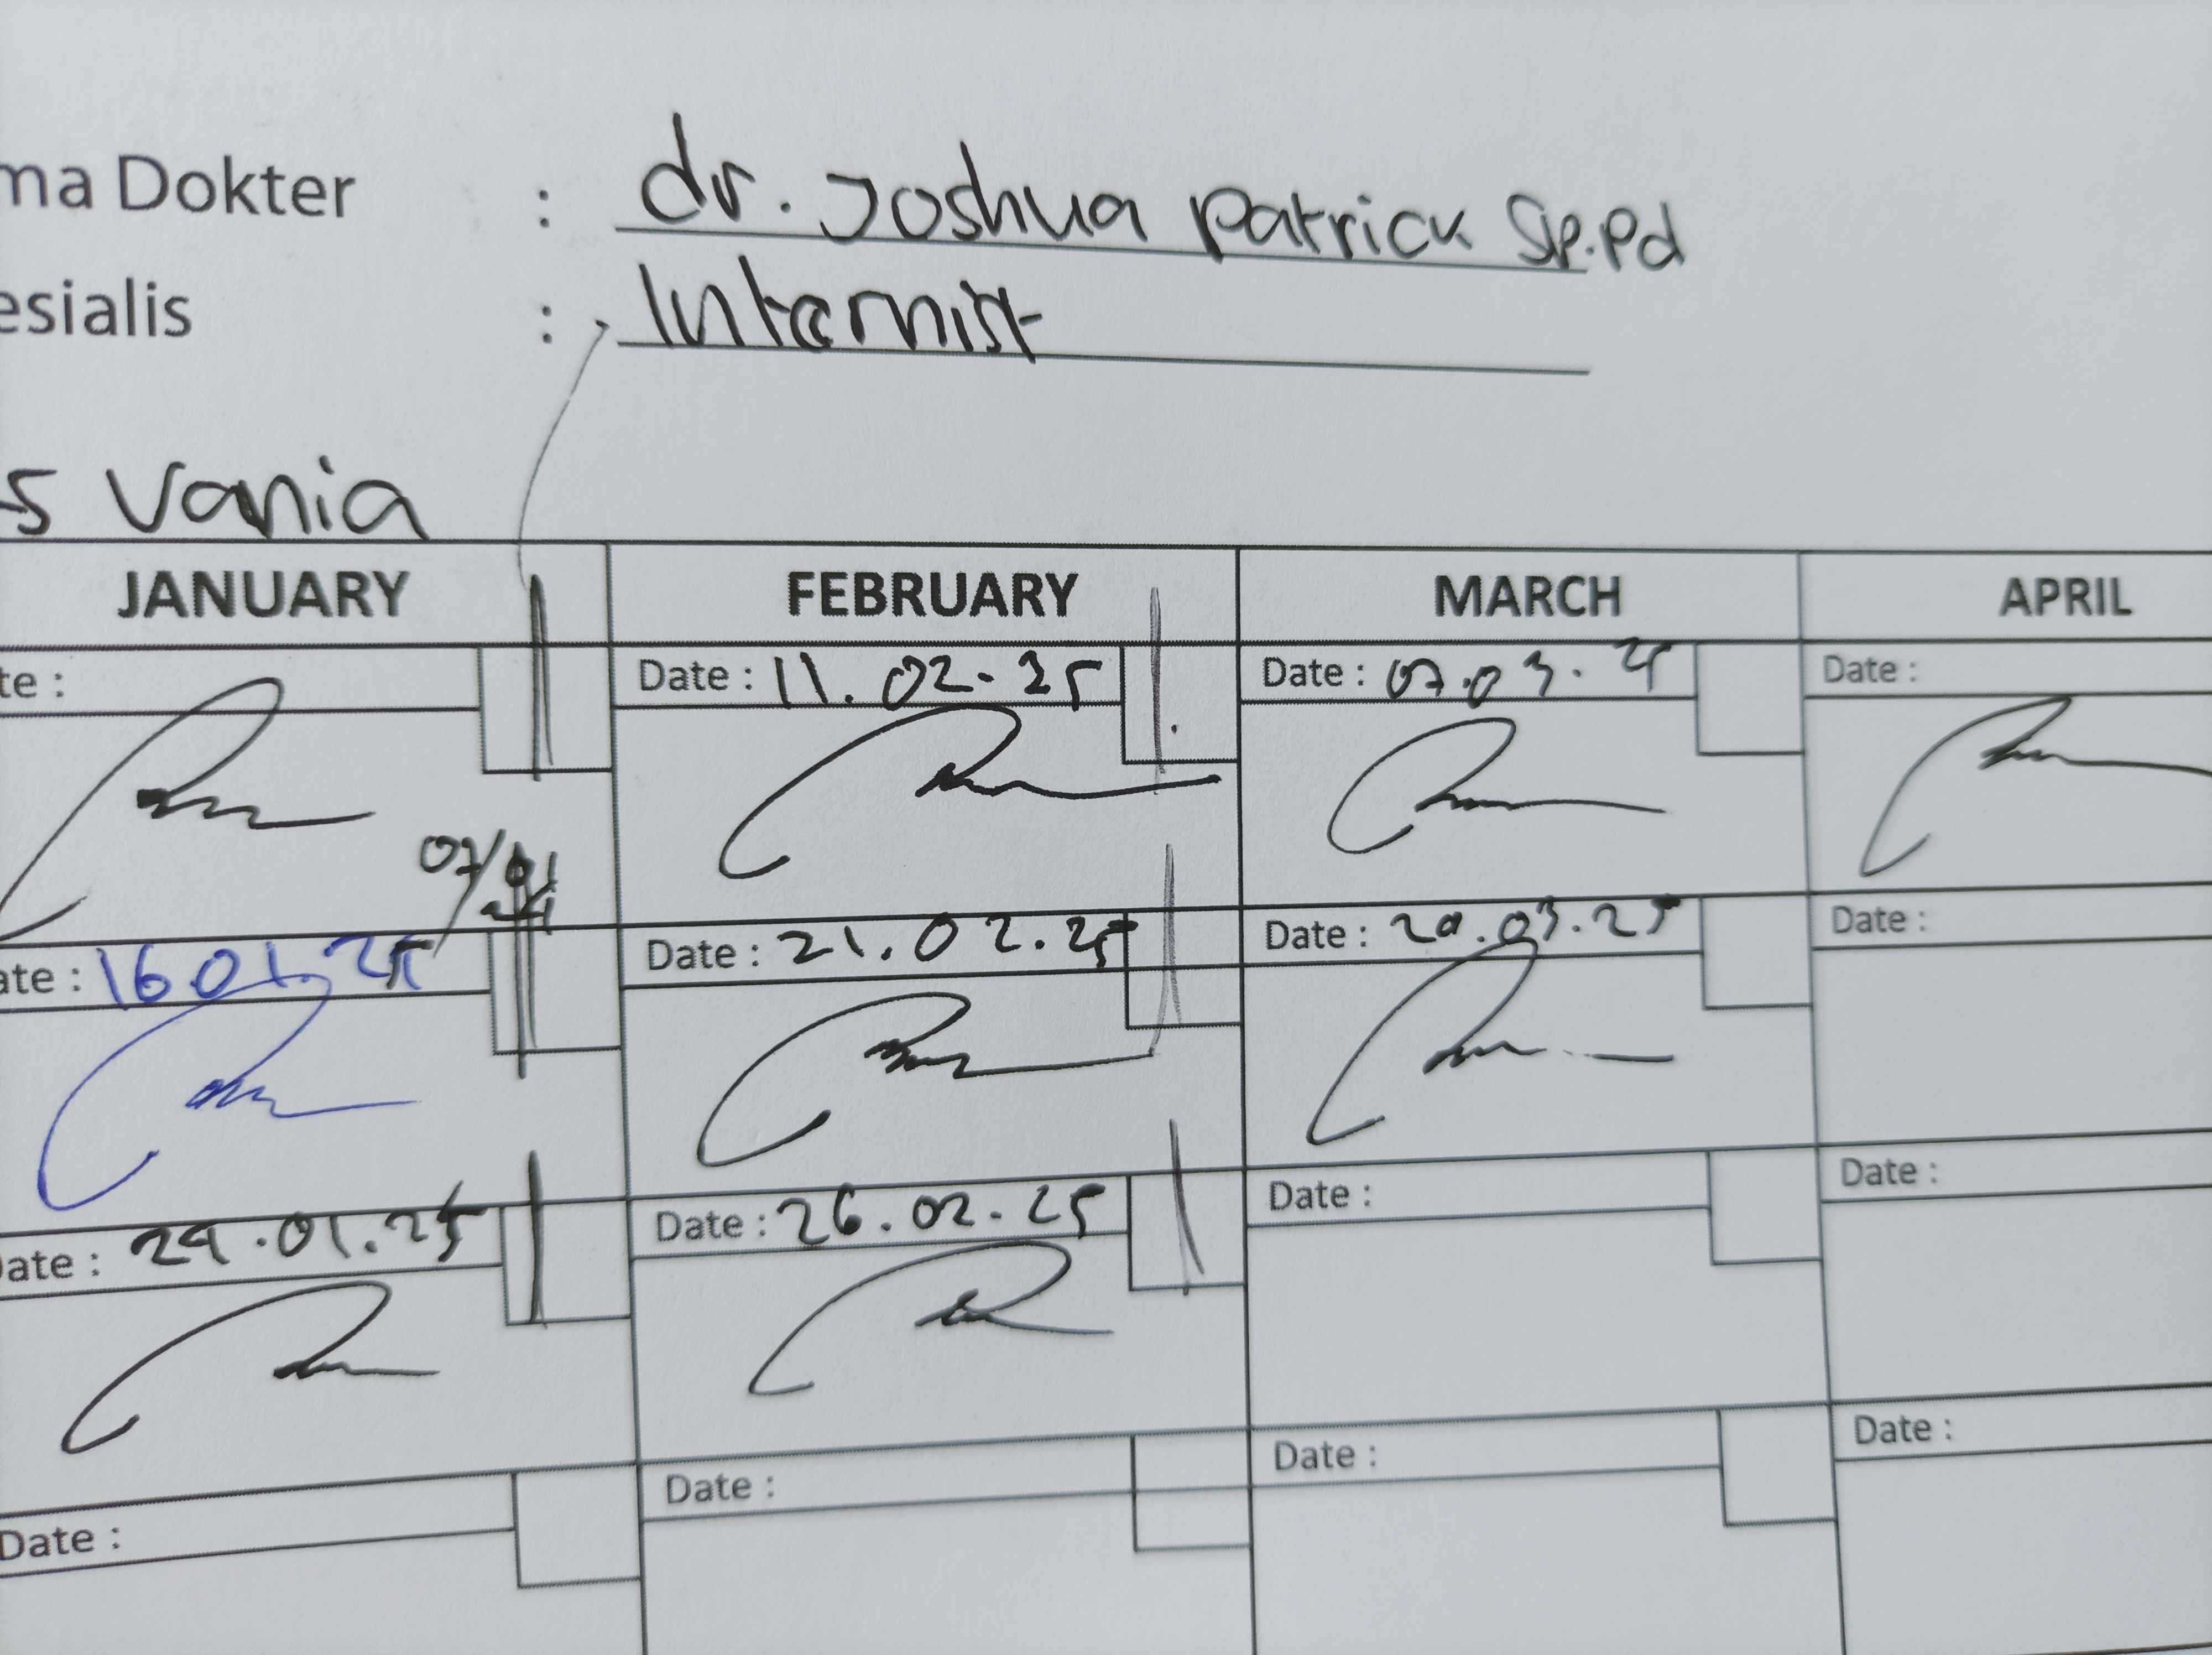 ma Dokter : dr. Joshua Patrick Sp.Pd
esialis : Internist
s Vania
JANUARY FEBRUARY MARCH APRIL
te : Date : 11.02.25 Date : 07.03.25 Date :
07/01
ate : 16.01.25 Date : 21.02.25 Date : 20.03.25 Date :
ate : 29.01.25 Date : 26.02.25 Date : Date :
Date : Date : Date : Date :